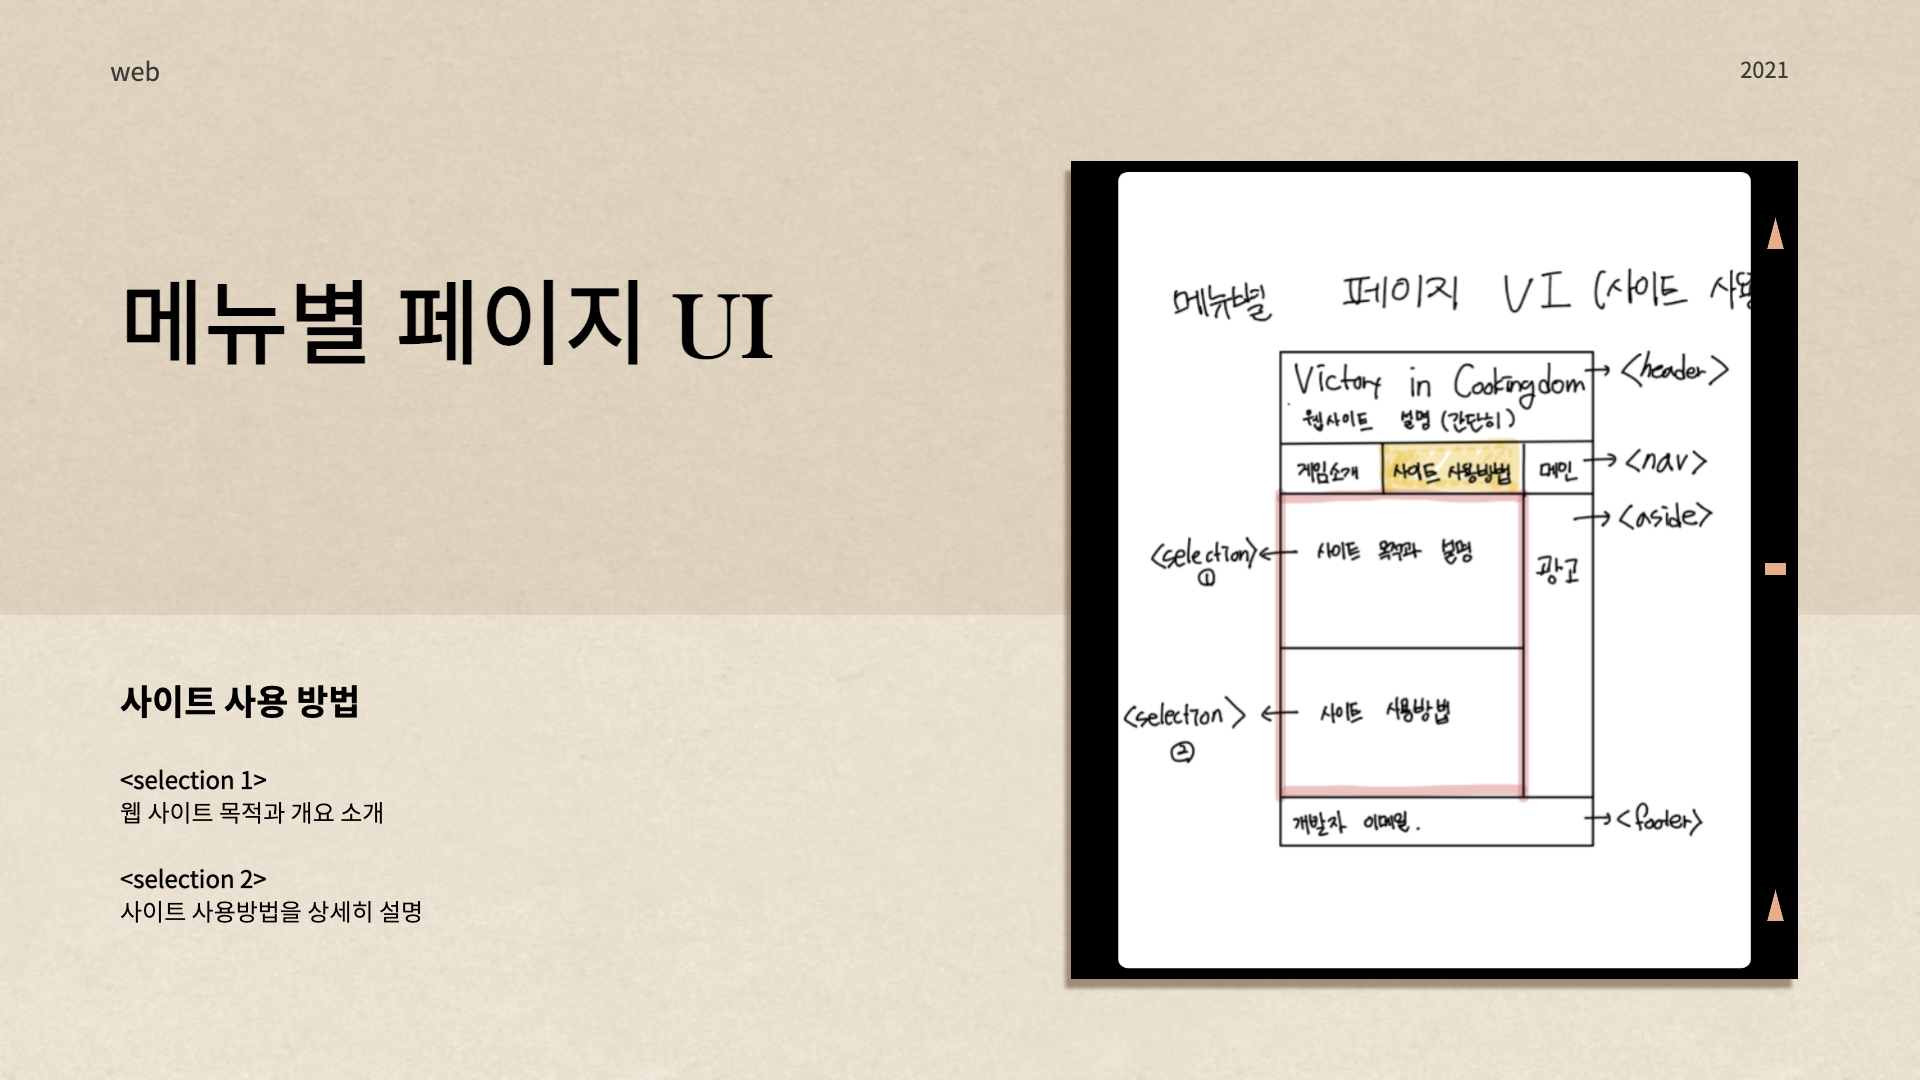 web
2021
메뉴별 페이지 UI
사이트 사용 방법
<selection 1>
웹 사이트 목적과 개요 소개
<selection 2>
사이트 사용방법을 상세히 설명
메뉴별 페이지 UI (사이트 사용
Victory in Cookingdom
→ <header>
웹사이트 설명 (간단히)
게임소개 사이트 사용방법 메인 → <nav>
→ <aside>
<selection> ← 사이트 목적과 설명
①
광고
<selection> ← 사이트 사용방법
②
개발자 이메일. → <footer>